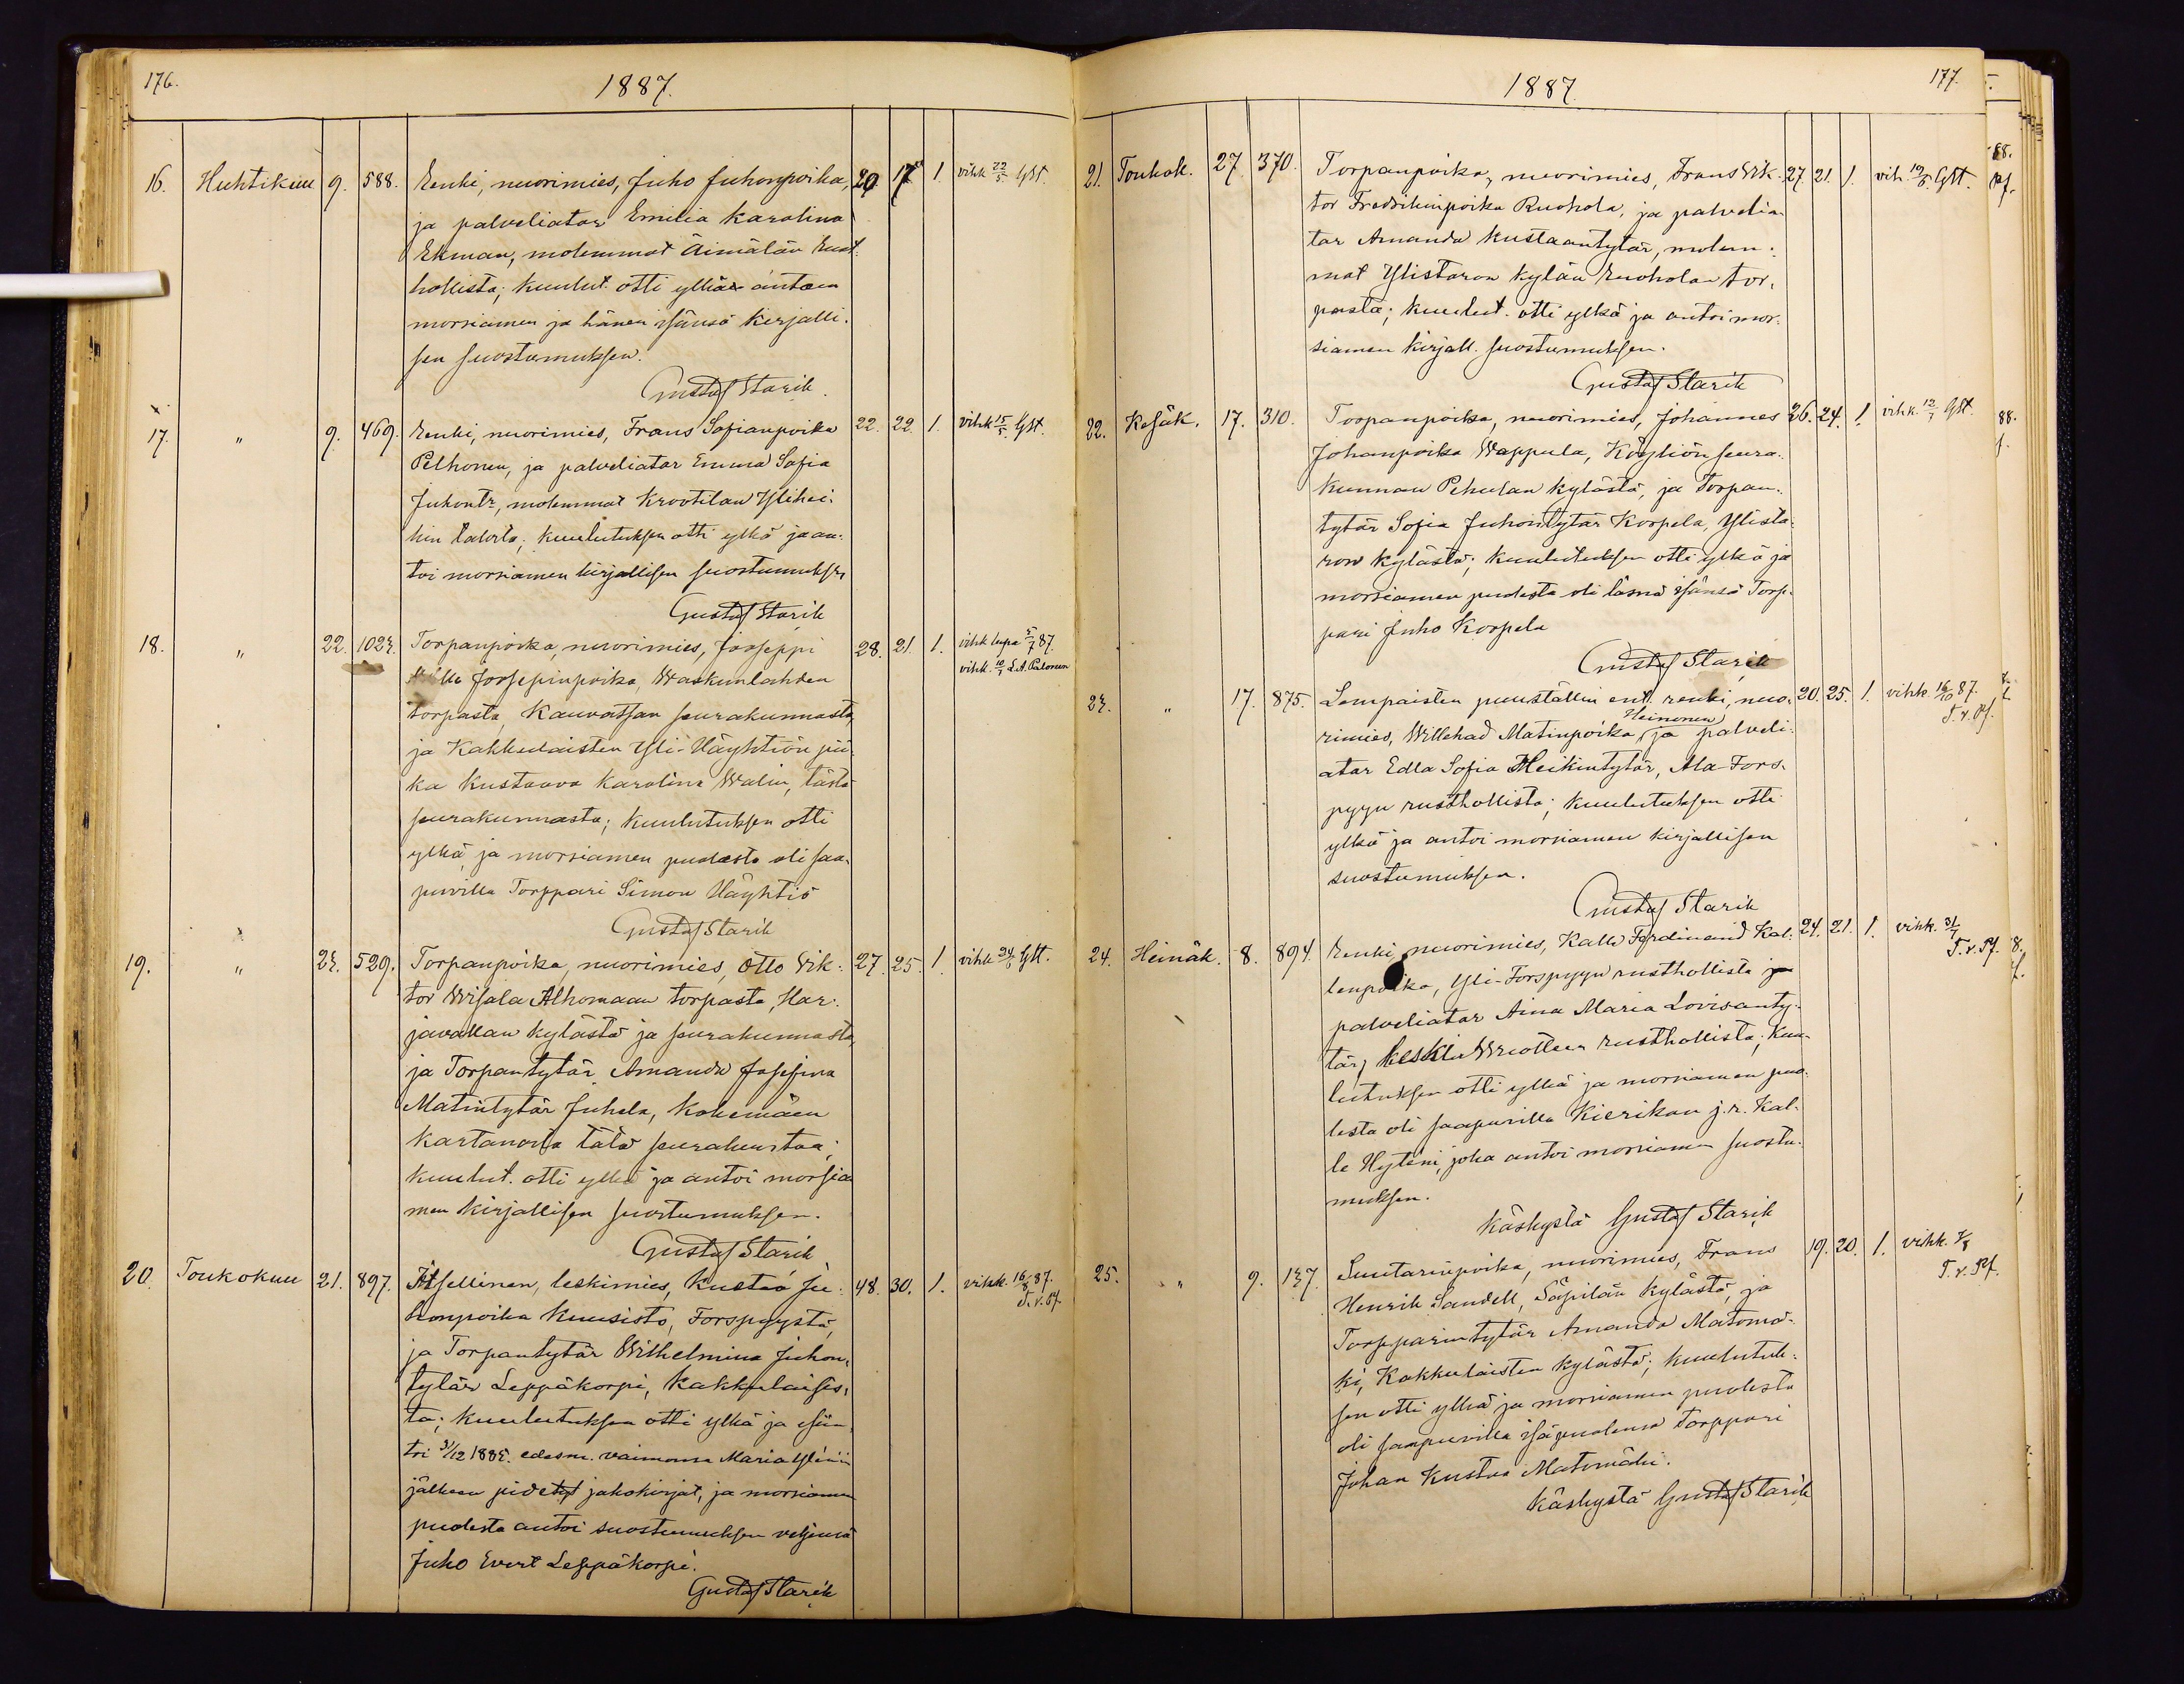 176.
1887.
16. Huhtikuu 9. 588. Renki, nuorimies, Juho Juhonpoika, 20 17 1. vihk. 22/5 GSt.
ja palveliatar Emilia Karolina
Ekman, molemmat Äimälän Rust
hollista; kuulut. otti ylkä antaen
morsiamen ja hänen isänsä kirjalli-
sen suostumuksen.
Gustaf Starik
17. " 9. 469. Renki, nuorimies, Frans Sofianpoika 22. 22. 1. vihk 15/5 GSt.
Pelhonen, ja palveliatar Emma Sofia
Juhontr, molemmat Krootilan Ylihei-
kin talosta; kuulutuksen otti ylkä ja an-
toi morsiamen kirjallisen suostumuksen
Gustaf Starik
18. " 22. 1023. Torpanpoika, nuorimies, Joseppi 28. 21. 1. vihk lupa 5/7 87.
Josepinpoika, Waskunlahden vihk. 10/7 L.A. Palonen
torpasta, Kauvatsan seurakunnasta,
ja Kakkulaisten Yli-Häyhtiön pii-
ka Kustaava Karolina Walin, tästä
seurakunnasta; kuulutuksen otti
ylkä ja morsiamen puolesta oli saa-
puvilla Torppari Simon Häyhtiö
Gustaf Starik
19. " 23. 529. Torpanpoika, nuorimies, Otto Vik- 27. 25. 1. vihk 24/6 GSt.
tor Wisala Alhomaan torpasta, Har-
javallan kylästä ja seurakunnasta,
ja Torpantytär Amanda Josefina
Matintytär Juhela, Kokemäen
Kartanosta tätä seurakuntaa;
kuulut. otti ylkä ja antoi morsia
men kirjallisen suostumuksen.
Gustaf Starik
20. Toukokuu 21. 897. Itsellinen, leskimies, Kustaa Ju- 48. 30. 1. vihk. 16/8 87.
honpoika Kuusisto, Forspyystä, T.v.Pf.
ja Torpantytär Wilhelmina Juhon-
tytär Leppäkorpi, Kakkulaisis-
ta; kuulutuksen otti ylkä ja
toi 31/12 1883. edesm. vaimonsa Maria
jälkeen pidetyt jakokirjat, ja morsiamen
puolesta antoi suostumuksen veljensä
Juho Evert Leppäkorpi.
Gustaf Starik
1887
177.
21. Toukok. 27. 370. Torpanpoika, nuorimies, Frans Vik- 27. 21. 1. vih. 19/6 GSt.
tor Fredrikinpoika Ruohola, ja palvelia-
tar Amanda Kustaantytär, molem-
mat Ylistaron kylän Ruoholan tor-
pasta; kuulut. otti ylkä ja antoi mor-
siamen kirjall. suostumuksen.
Gustaf Starik
22. Kesäk. 17. 310. Torpanpoika, nuorimies, Johannes 26. 24. 1. vihk. 12/7 GSt.
Johanpoika Wappula, Köyliön seura-
kunnan Pehulan kylästä, ja Torpan-
tytär Sofia Juhontytär Korpela, Ylista-
ron kylästä; kuulutuksen otti ylkä ja
morsiamen puolesta oli läsnä isänsä Torp-
pari Juho Korpela
Gustaf Starik
23. " 17. 875. Lempaisten puuställin ent. renki, nuo- 20. 25. 1. vihk. 16/10 87.
Heinonen T.v.Pf.
rimies, Willehad Matinpoika, ja palveli-
atar Edla Sofia Heikintytär, Ala-Fors-
pyyn rusthollista; kuulutuksen otti
ylkä ja antoi morsiamen kirjallisen
suostumuksen.
Gustaf Starik
24. Heinäk. 8. 894. Renki, nuorimies, Kalle Ferdinand Kal- 24. 21. 1. vihk. 31/7
lenpoika, Yli-Forspyyn rusthollista ja T.v.Pf.
palveliatar Aina Maria Lovisanty-
tär, Keski Wuolteen rusthollista; kuu-
lutuksen otti ylkä ja morsiamen puo-
lesta oli saapuvilla Kierikan j.r. Kal-
le Hyteni, joka antoi morsiamen suostu-
muksen.
Käskystä Gustaf Starik
25. " 9. 137. Suutarinpoika, nuorimies, Frans 19. 20. 1. vihk.
Henrik Sandell, Säpilän kylästä, ja T.v.Pf.
Torpparintytär Amanda Matomä-
ki, Kakkulaisten kylästä; kuulutuk-
sen otti ylkä ja morsiamen puolesta
oli saapuvilla isäpuolensa torppari
Johan Kustaa Matomäki.
Käskystä Gustaf Starik